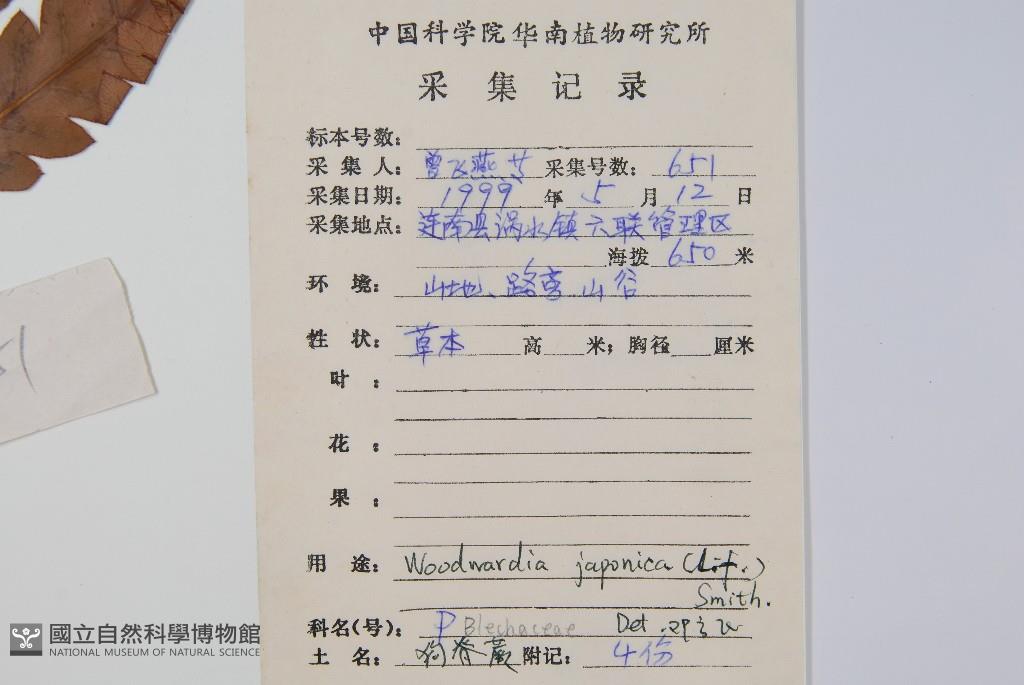 中国科学院华南植物研究所
采集记录
标本号数：
采集人：曾飞燕等 采集号数：651
采集日期：1999年5月12日
采集地点：连南县涡水镇六联管理区
海拨650米
环境：山地、路旁 山谷
性状：草本 高 米；胸径 厘米
叶：
花：
果：
用途：Woodwardia japonica (L.f.)
Smith.
科名(号)：P Blechaceae Det.
土名：狗脊蕨 附记：4份
國立自然科學博物館
NATIONAL MUSEUM OF NATURAL SCIENCE